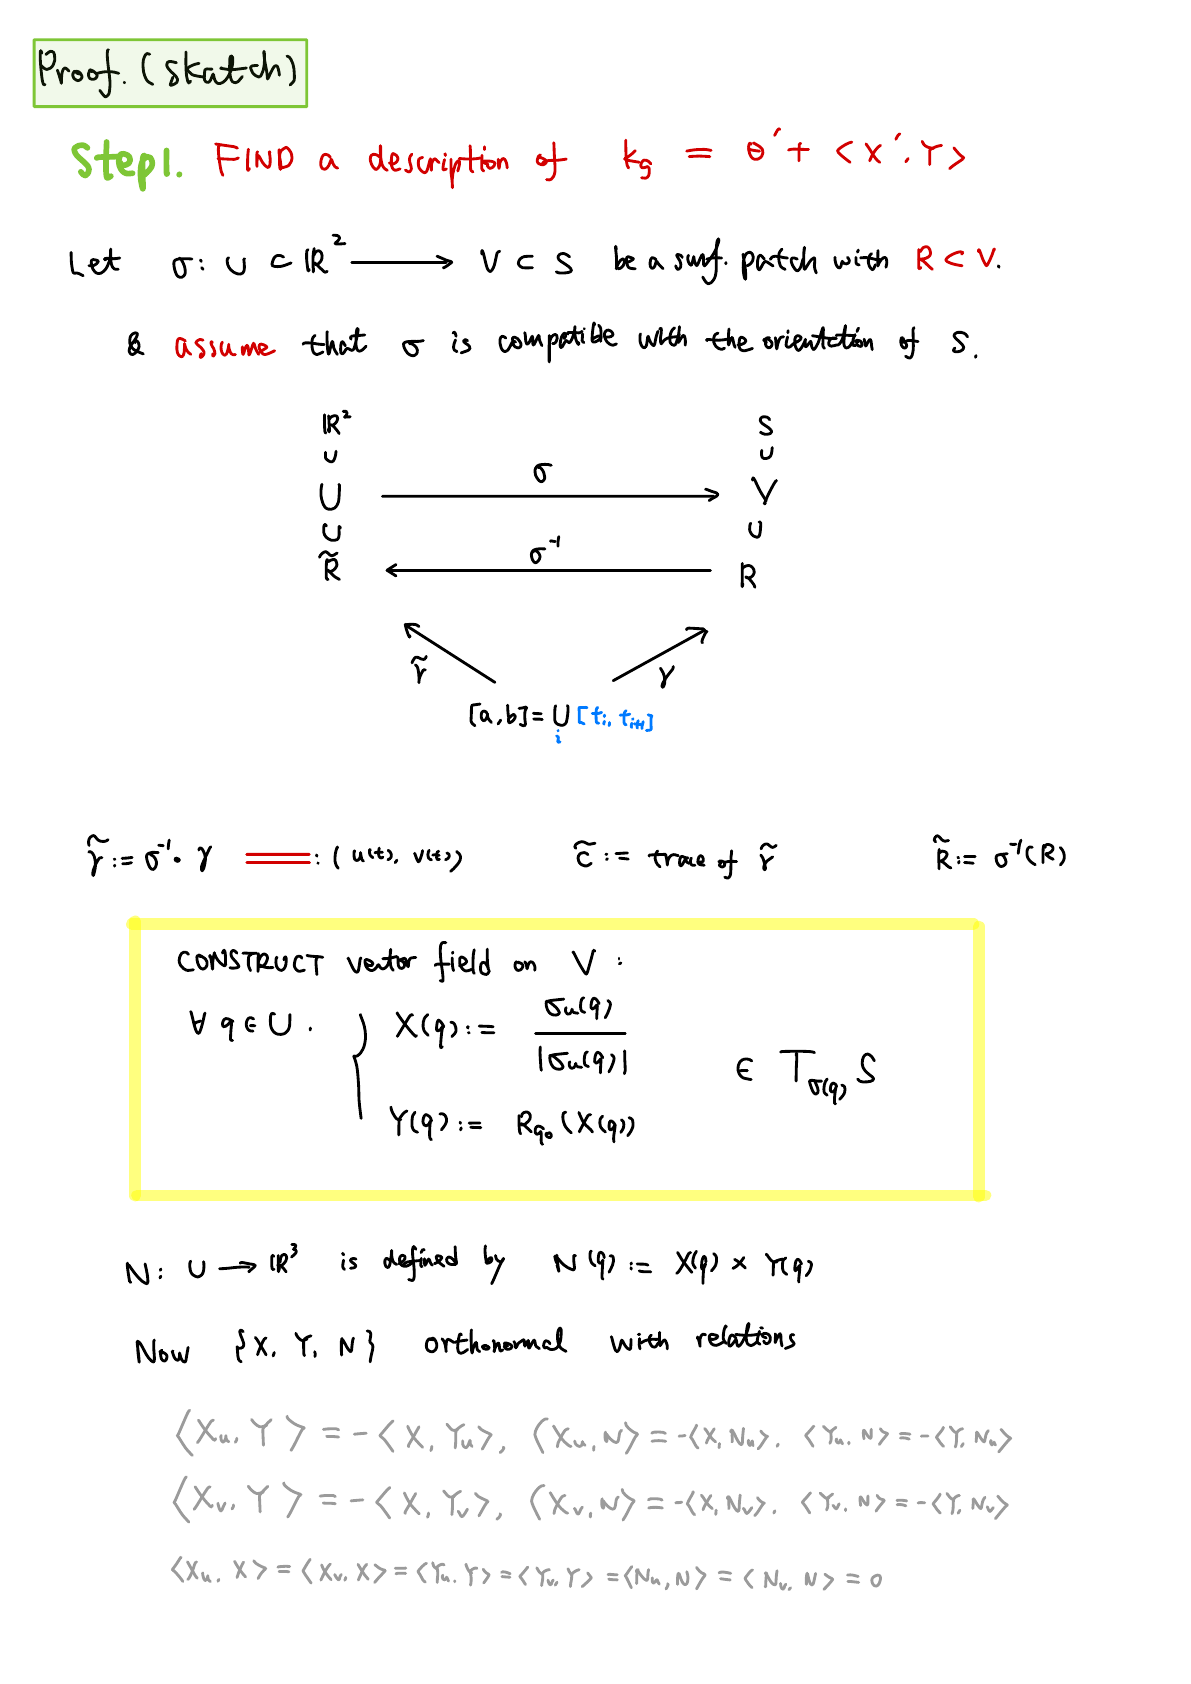 Proof. (skatch)
Step1. FIND a description of kg = θ' + <X'. Y>
Let σ: U ⊂ ℝ² ⟶ V ⊂ S be a surf. patch with R ⊂ V.
& assume that σ is compatible with the orientation of S.
ℝ² S
∪ ∪
U σ V
∪ ∪
R̃ σ⁻¹ R
γ̃ γ
[a, b] = ∪ᵢ [tᵢ, tᵢ₊₁]
γ̃ := σ⁻¹∘γ ═══: (u(t), v(t)) C̃ := trace of γ̃ R̃ := σ⁻¹(R)
CONSTRUCT vector field on V :
∀ q ∈ U . { X(q) := σu(q) / |σu(q)|
∈ T_σ(q) S
Y(q) := R_q₀ (X(q))
N: U ⟶ ℝ³ is defined by N(q) := X(q) × Y(q)
Now {X, Y, N} orthonormal with relations
<Xu, Y> = -<X, Yu>, <Xu, N> = -<X, Nu>. <Yu, N> = -<Y, Nu>
<Xv, Y> = -<X, Yv>, <Xv, N> = -<X, Nv>. <Yv, N> = -<Y, Nv>
<Xu, X> = <Xv, X> = <Yu, Y> = <Yv, Y> = <Nu, N> = <Nv, N> = 0